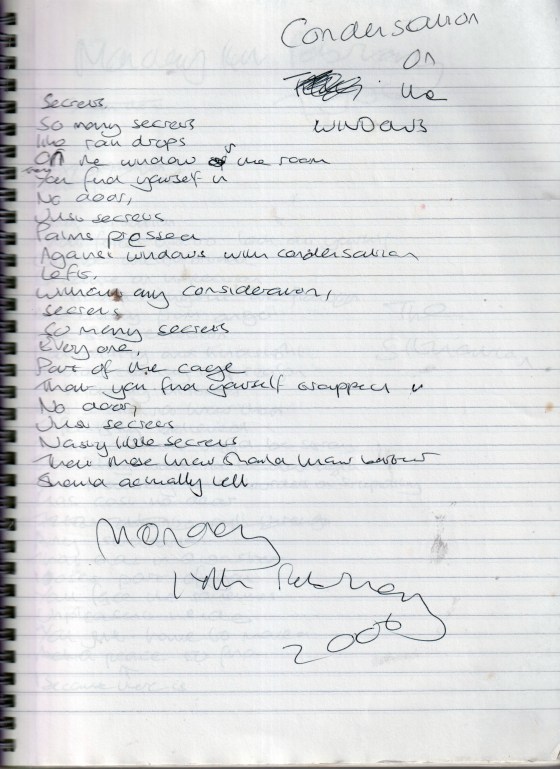 Condensation
On
the
windows
Secrets
So many secrets
like rain drops
On the window of the room
You find yourself in
No door,
Just secrets
Palms pressed
Against windows with condensation
Left,
without any consideration,
secrets
so many secrets
Every one,
Part of the cage
That you find yourself trapped in
No door,
Just secrets
Nasty little secrets
That those who should know better
Should actually tell
Monday
February
2006